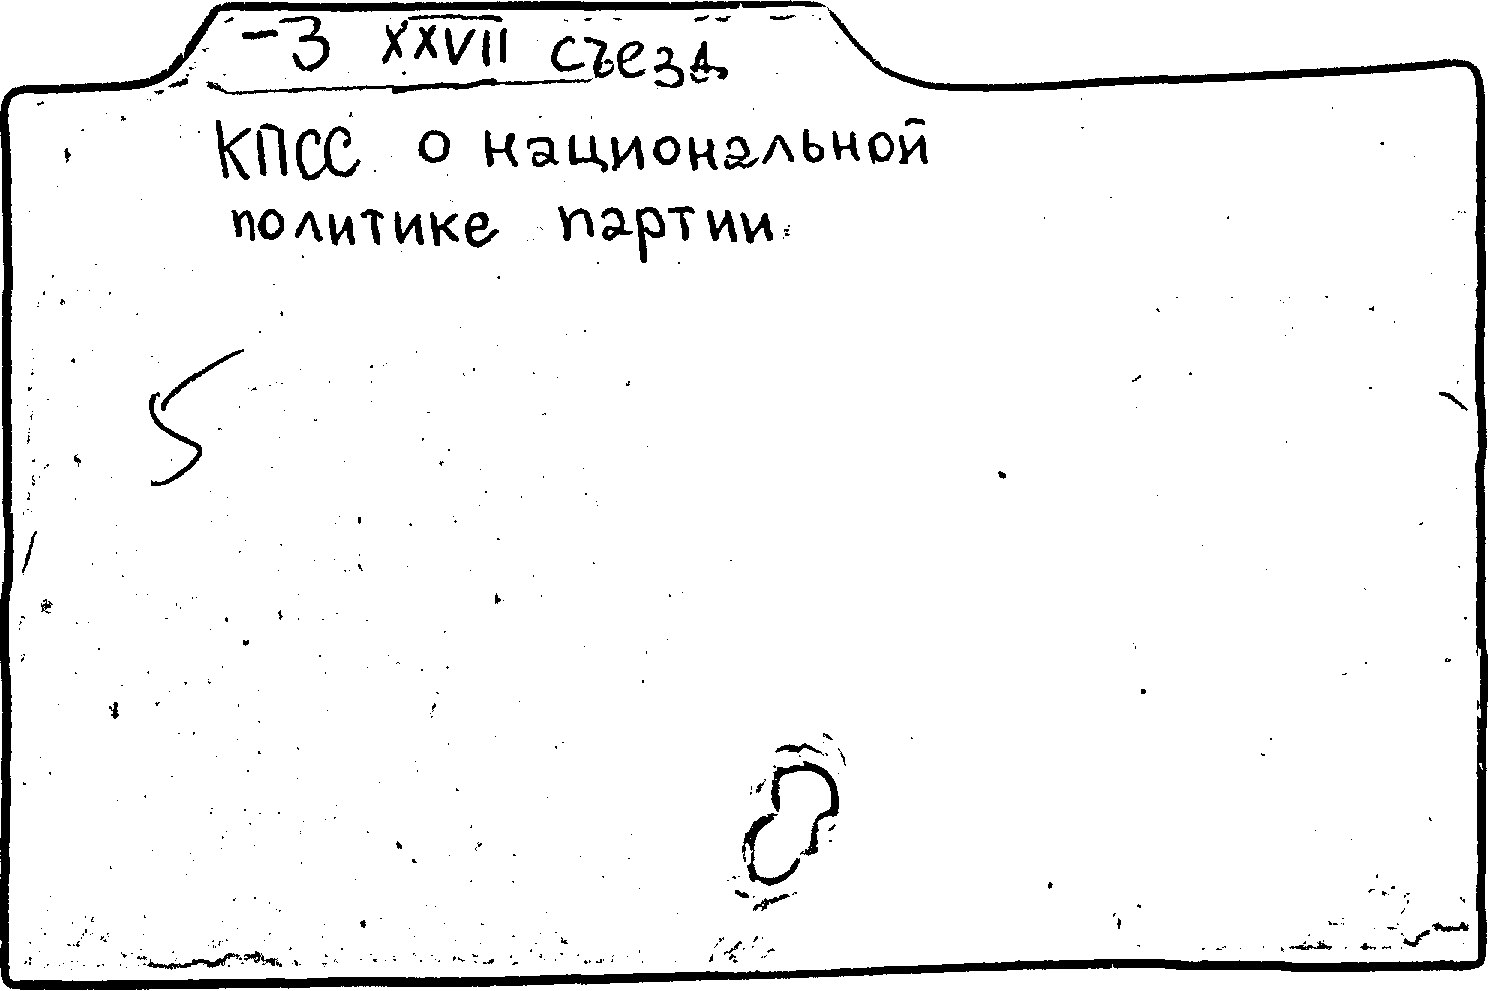 -3 XXVII съезд
КПСС о национальной
политике партии